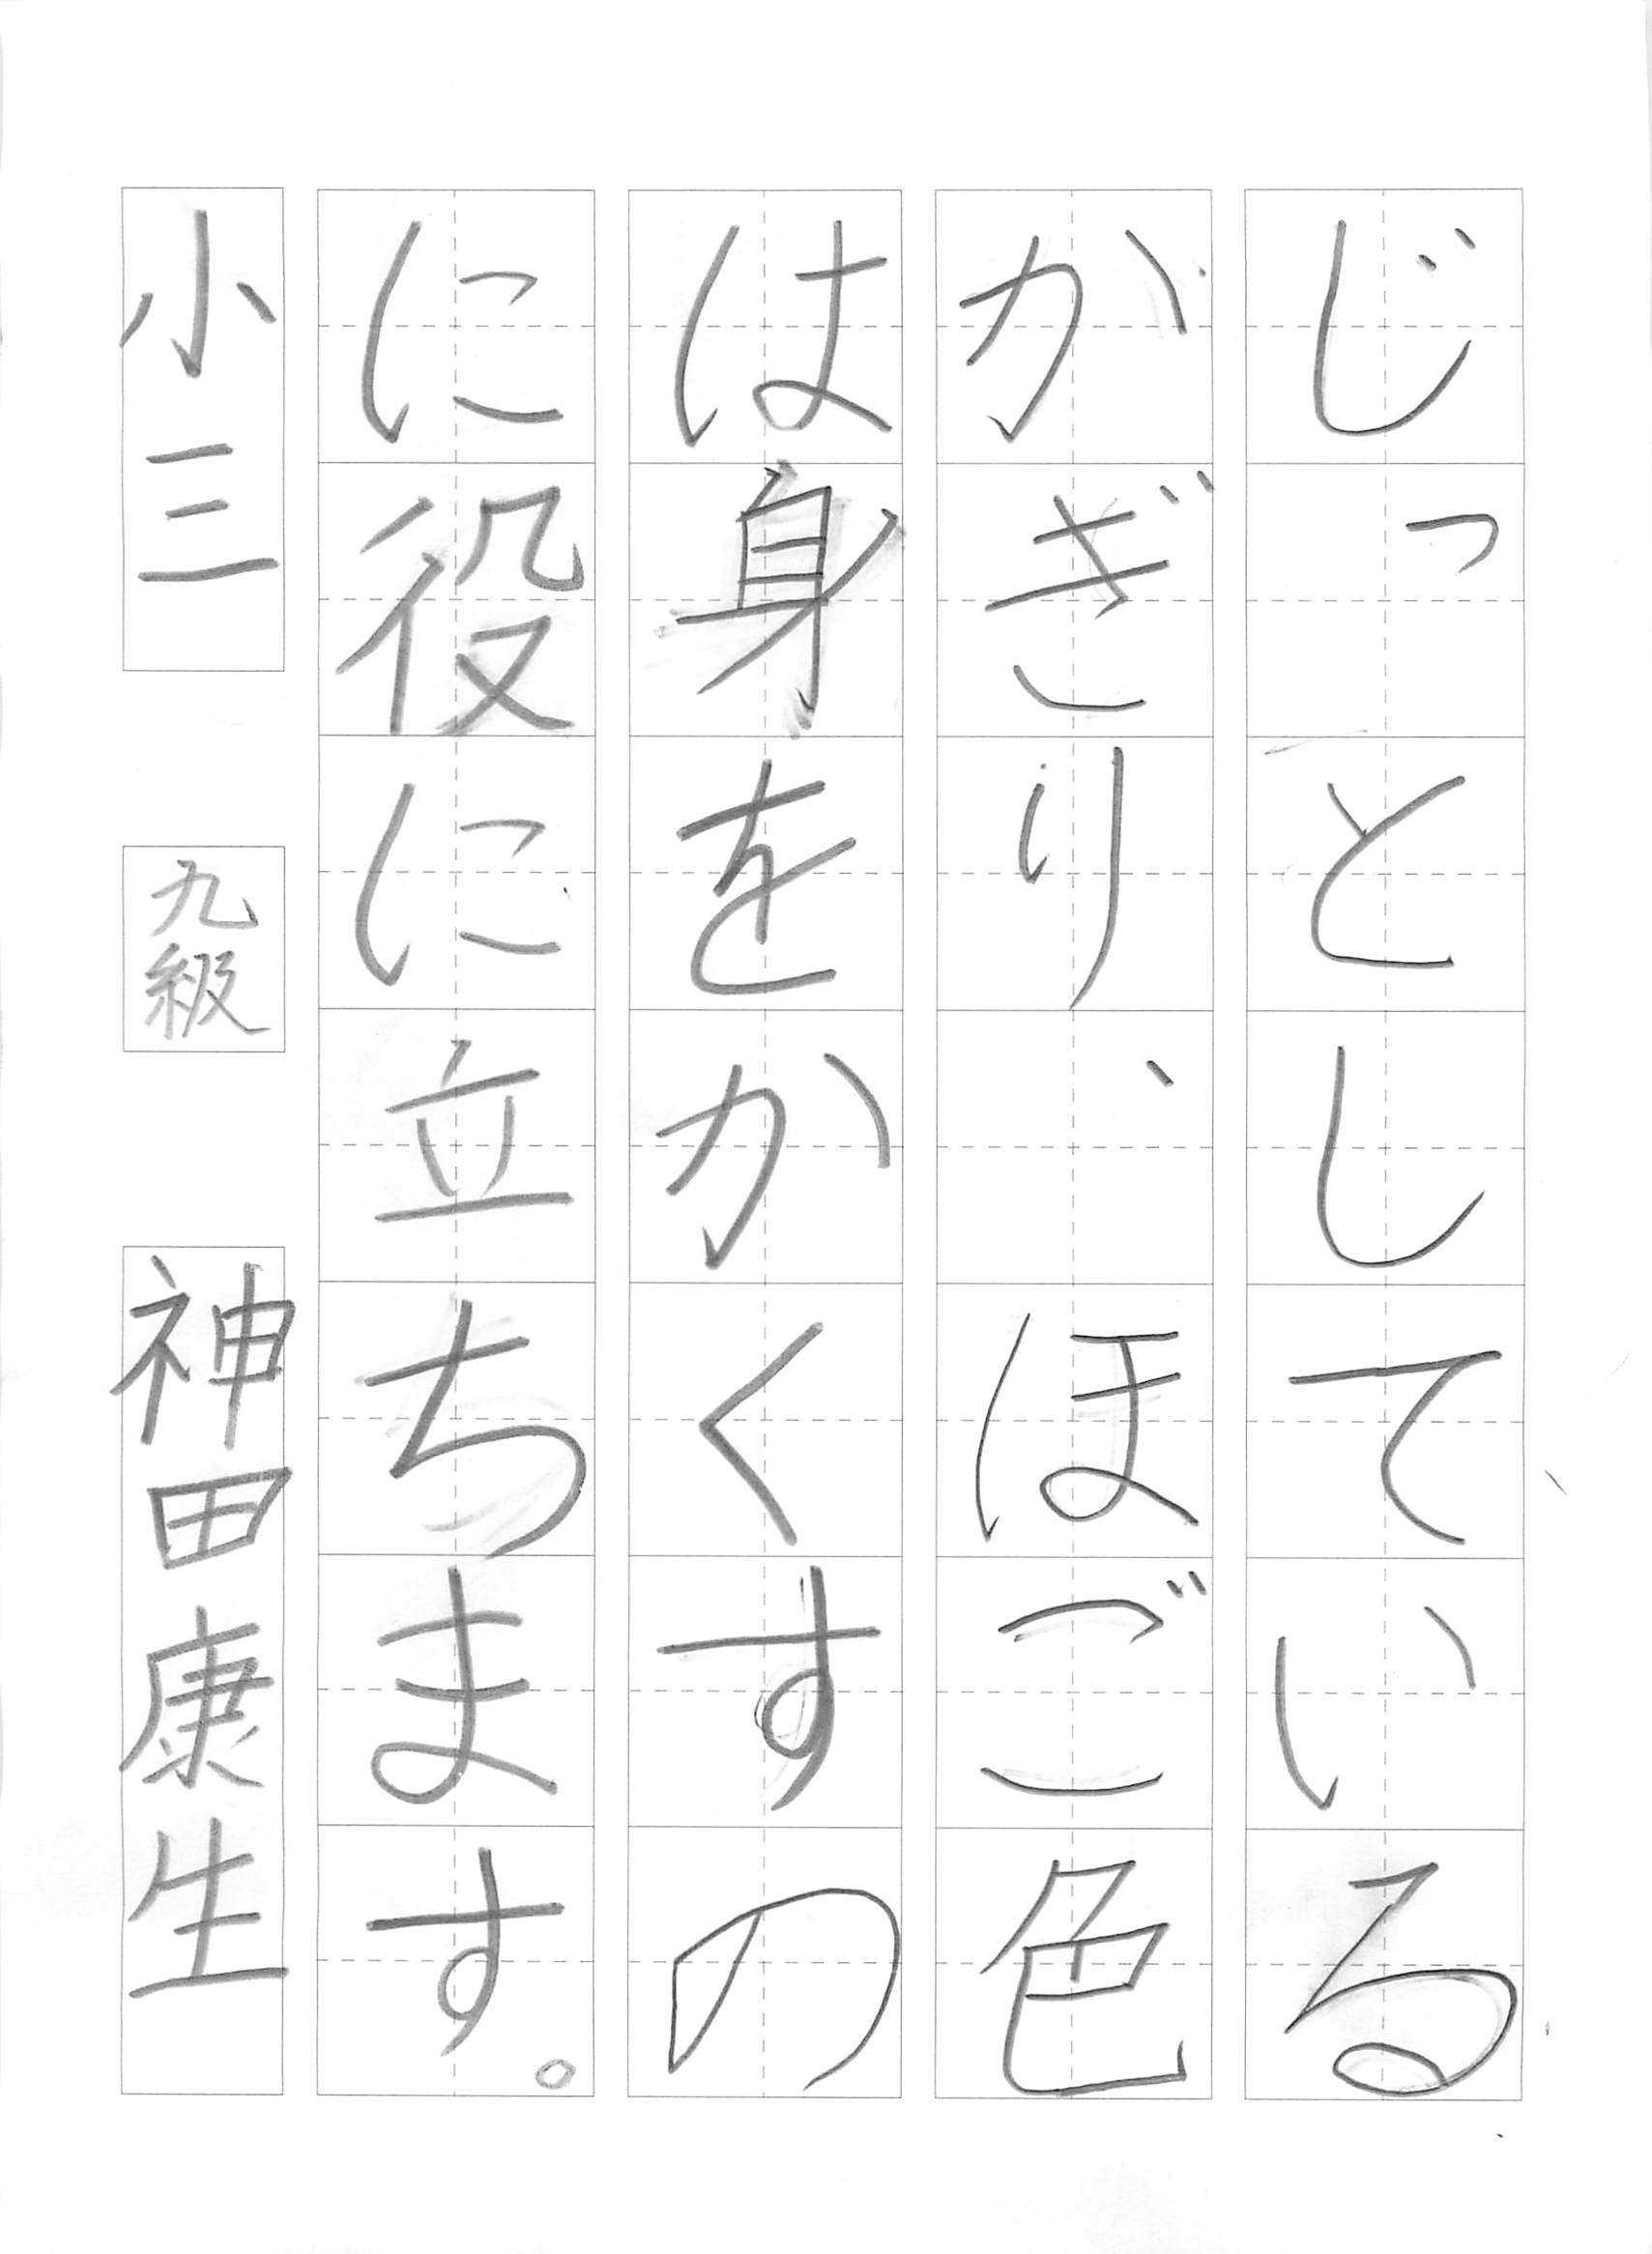 じっとしている
がぎり、ほご色
は身をかくすの
に役に立ちます。
小三 九級 神田康生